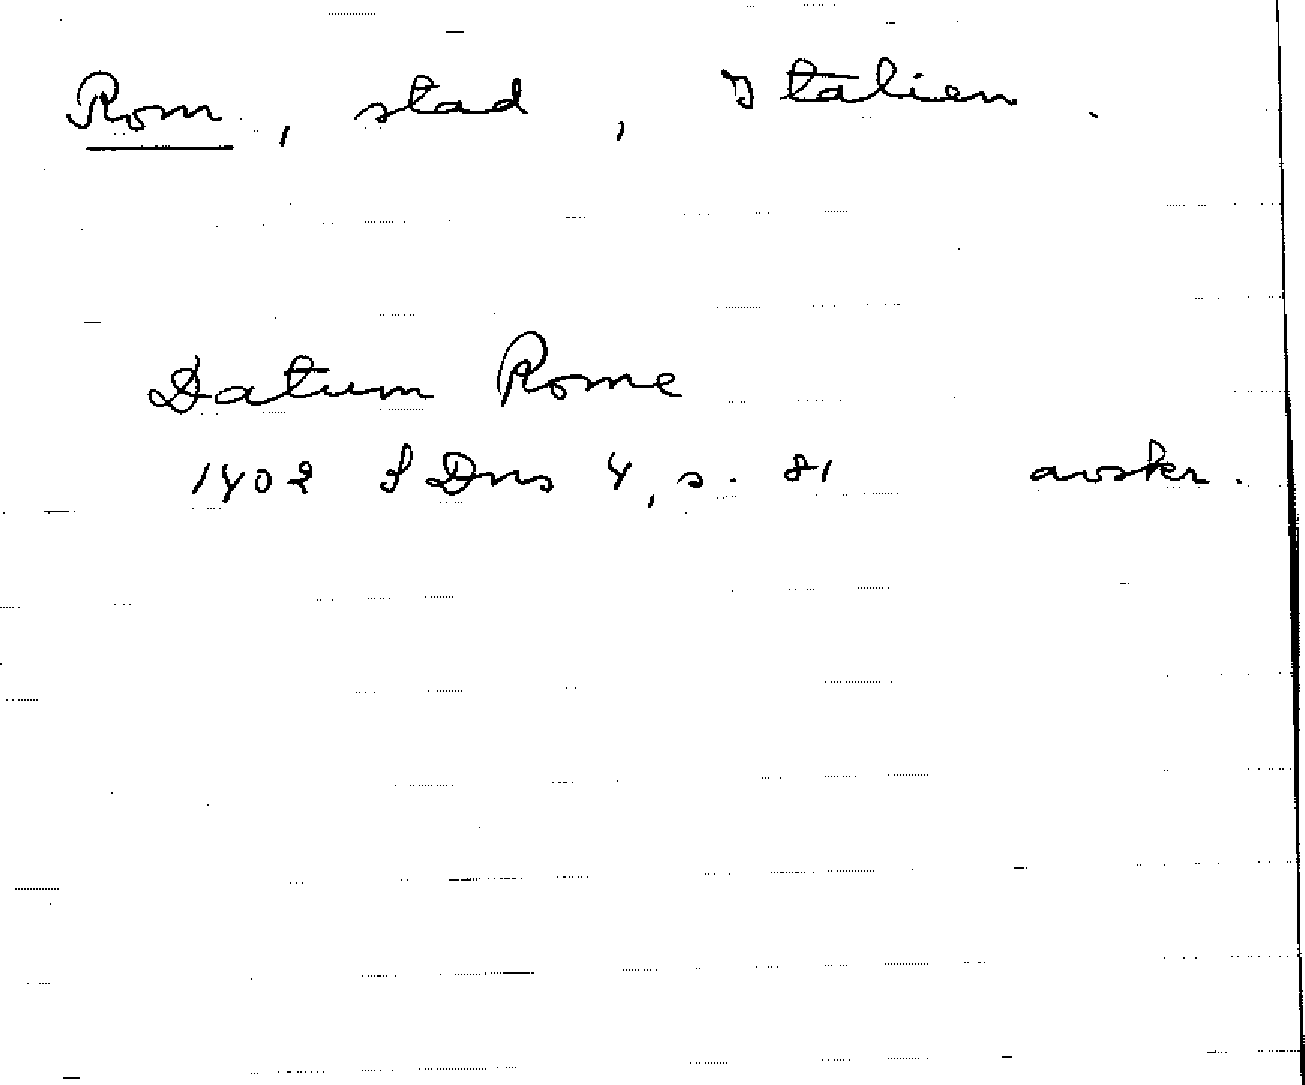 Rom, stad, Italien.
Datum Rome
1402 SDns 4, s. 81 avskr.